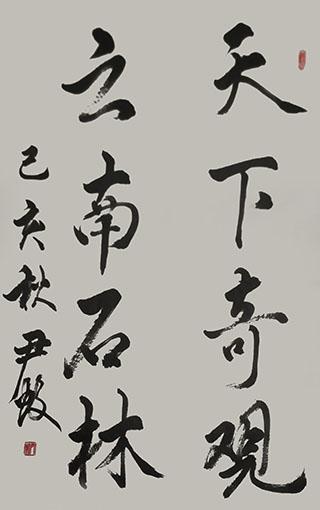 天下奇观
云南石林
己亥秋尹